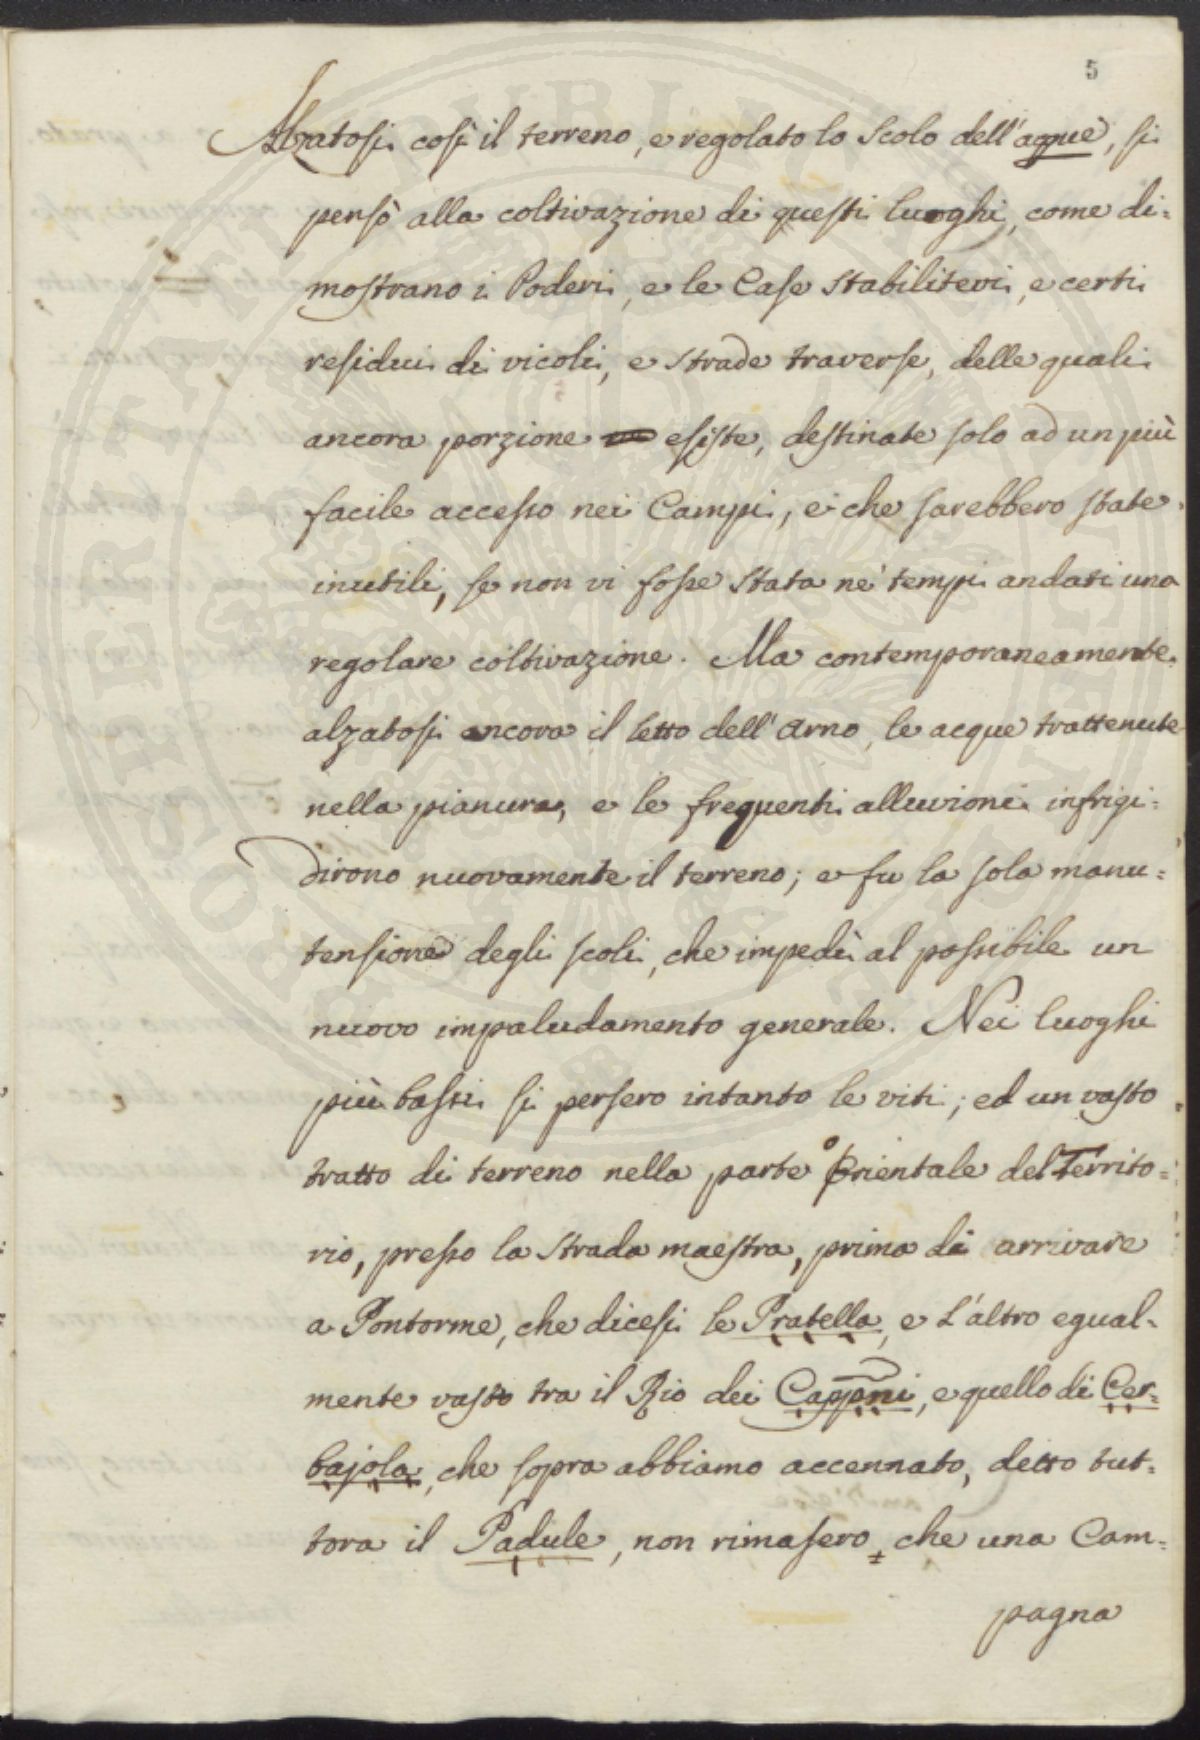 5
Alzatosi così il terreno, e regolato lo Scolo dell'acque, si
pensò alla coltivazione di questi luoghi, come di=
mostrano i Poderi, e le Case stabilitevi, e certi
residui di vicoli, e strade traverse, delle quali
ancora porzione esiste, destinate solo ad un più
facile accesso nei Campi, e che sarebbero state
inutili, se non vi fosse stata ne' tempi andati una
regolare coltivazione. Ma contemporaneamente
alzatosi ancora il letto dell'Arno, le acque trattenute
nella pianura, e le frequenti alluvioni infrigi=
dirono nuovamente il terreno; e fu la sola manu=
tensione degli scoli, che impedì al possibile un
nuovo impaludamento generale. Nei luoghi
più bassi si persero intanto le viti; ed un vasto
tratto di terreno nella parte Orientale del Territo=
rio, presso la strada maestra, prima di arrivare
a Pontorme, che dicesi le Pratella, e l'altro egual=
mente vasto tra il Rio dei Capponi, e quello di Cer=
bajola, che sopra abbiamo accennato, detto tut=
tora il Padule, non rimasero, che una Cam=
pagna